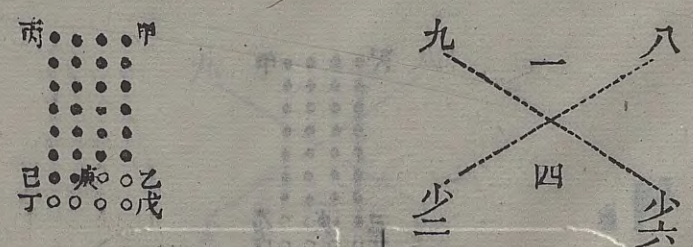 丙 甲
己 庚 乙
丁 戊
九 一 八
四
少二 少六